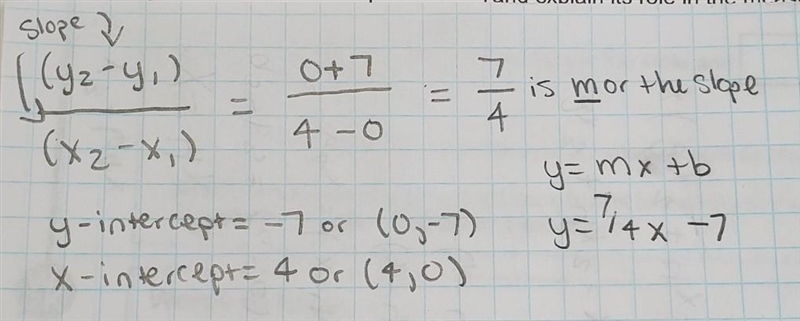 and explain its role in the
slope ↓
(y₂-y₁) / (x₂-x₁) = 0+7 / 4-0 = 7/4 is m or the slope
y= mx +b
y-intercept= -7 or (0,-7) y= 7/4x -7
x-intercept= 4 or (4,0)